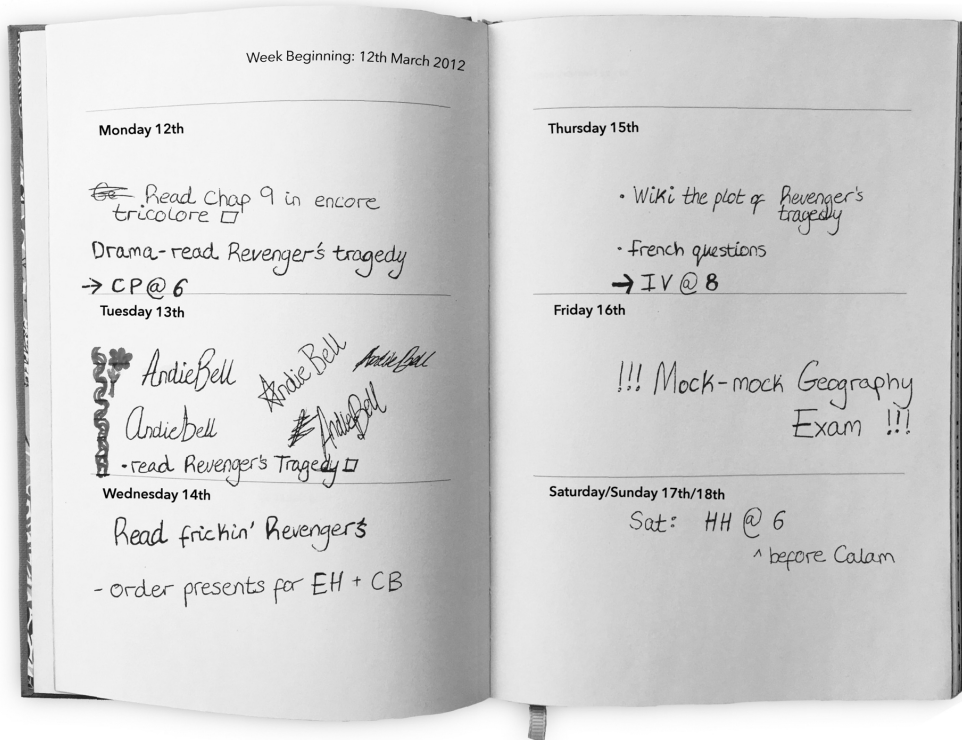 Week Beginning: 12th March 2012
Monday 12th
Read Chap 9 in encore
tricolore
Drama - read Revenger's tragedy
→ CP @ 6
Tuesday 13th
AndieBell
Andie Bell
Andie Bell
AndieBell
AndieBell
• read Revenger's Tragedy
Wednesday 14th
Read frickin' Revengers
- order presents for EH + CB
Thursday 15th
• Wiki the plot of Revenger's
tragedy
• french questions
→ IV @ 8
Friday 16th
!!! Mock-mock Geography
Exam !!!
Saturday/Sunday 17th/18th
Sat: HH @ 6
^ before Calam